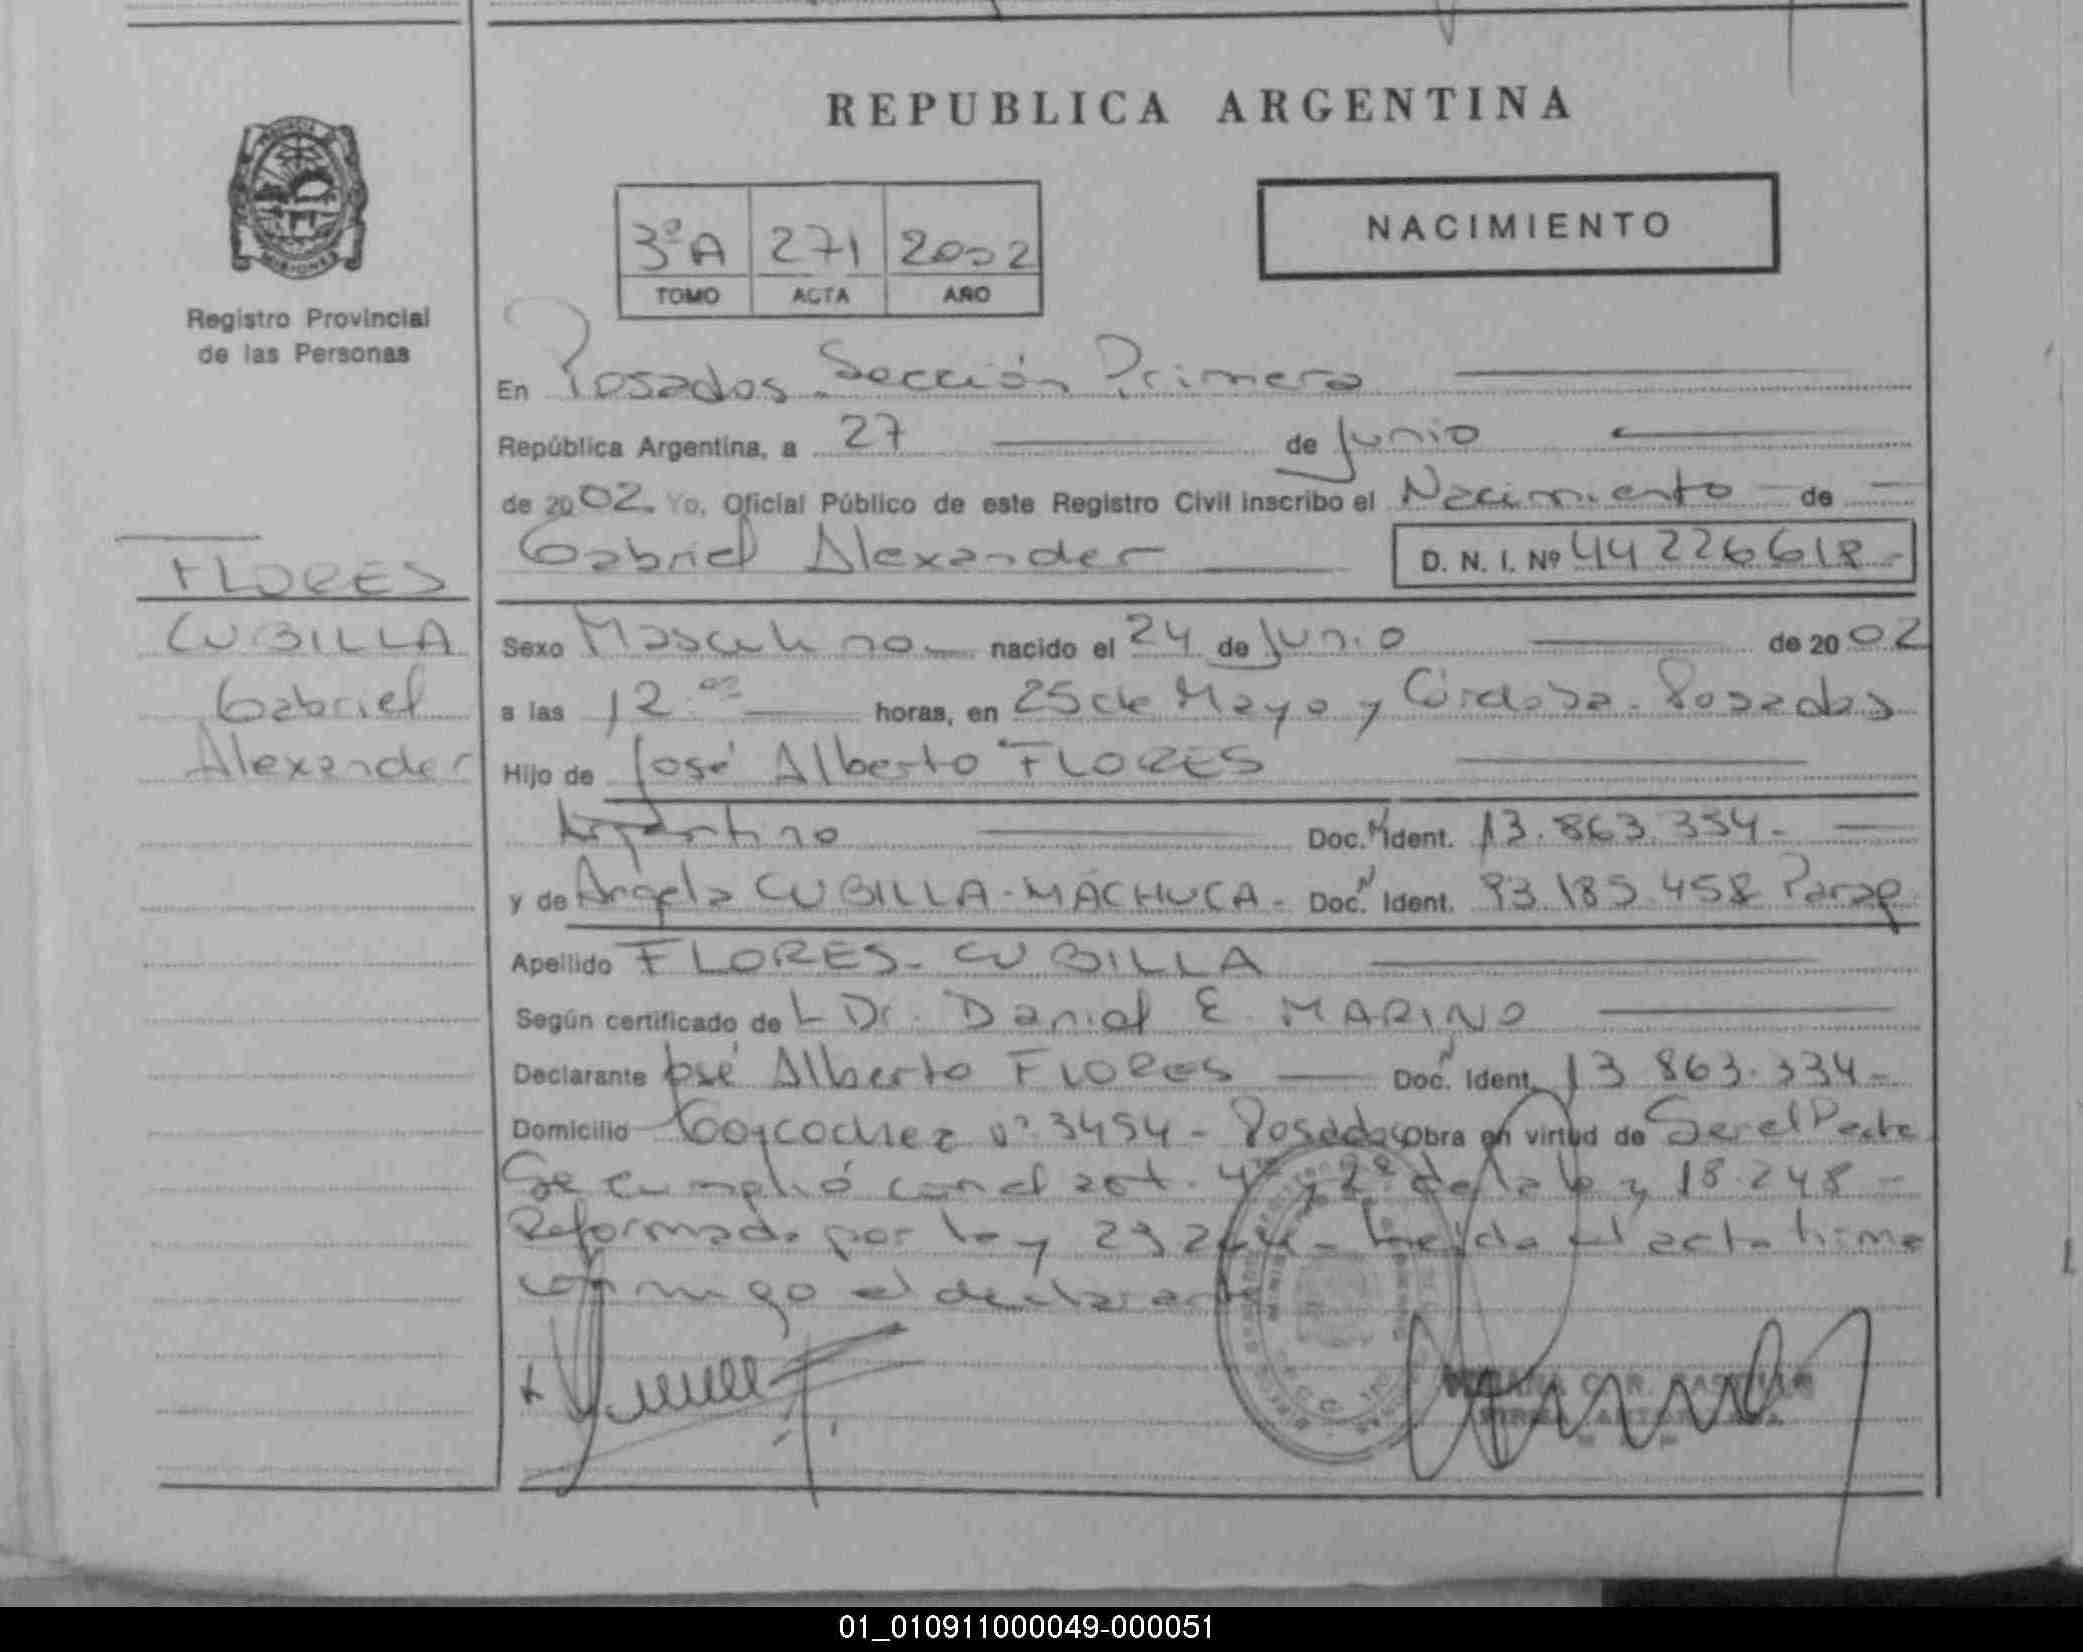 REPUBLICA ARGENTINA
NACIMIENTO
3º A 271 2002
TOMO ACTA AÑO
Registro Provincial
de las Personas
MISIONES
En Posadas Sección Primera
República Argentina, a 27 de Junio
de 2002. Yo, Oficial Público de este Registro Civil inscribo el Nacimiento de
Gabriel Alexander D. N. I. Nº 44226618
FLORES
CUBILLA
Gabriel
Alexander
Sexo Masculino nacido el 24 de Junio de 2002
a las 12 horas, en 25 de Mayo y Córdoba - Posadas
Hijo de José Alberto FLORES
Argentino Doc. N Ident. 13.863.334-
y de Angela CUBILLA-MACHUCA- Doc. N Ident. 93.185.458 Parag
Apellido FLORES-CUBILLA
Según certificado del Dr. Daniel E. MARINO
Declarante José Alberto FLORES Doc. N Ident. 13 863.334-
Domicilio nº 3454 - Posadas obra en virtud de Ser el Padre
Se cumplió con el art. 4º y 2º de la ley 18.248 -
Reformada por ley 23264 - Leída el acta firma
conmigo el declarante
01_010911000049-000051